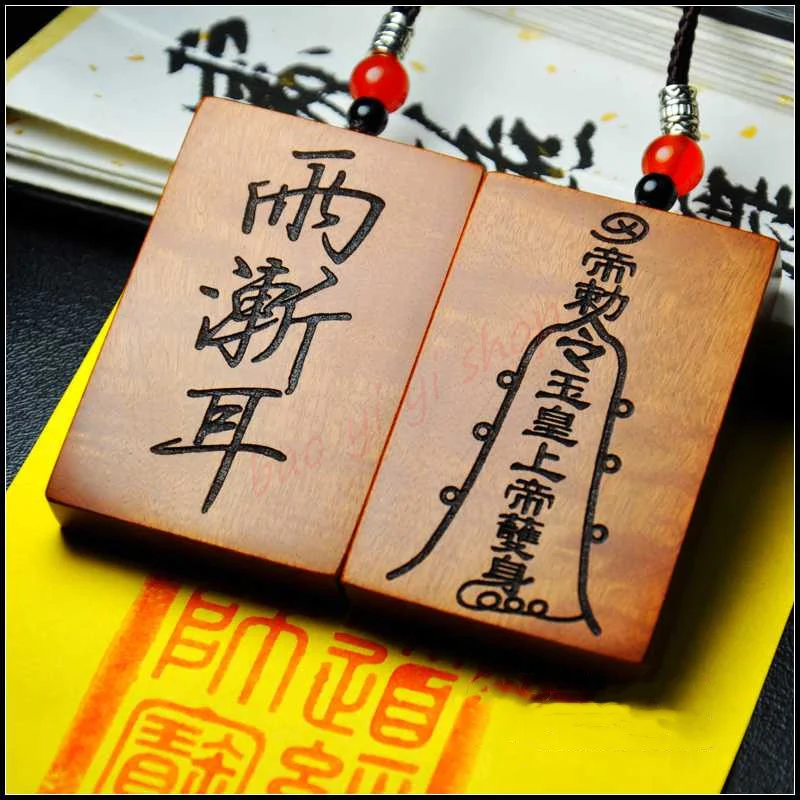 雨漸耳
帝勅令玉皇上帝身
bao yi yi shop
道經
師寶